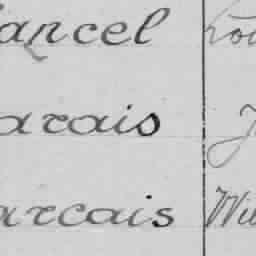 ancel Lou
arais J
arcais Wil